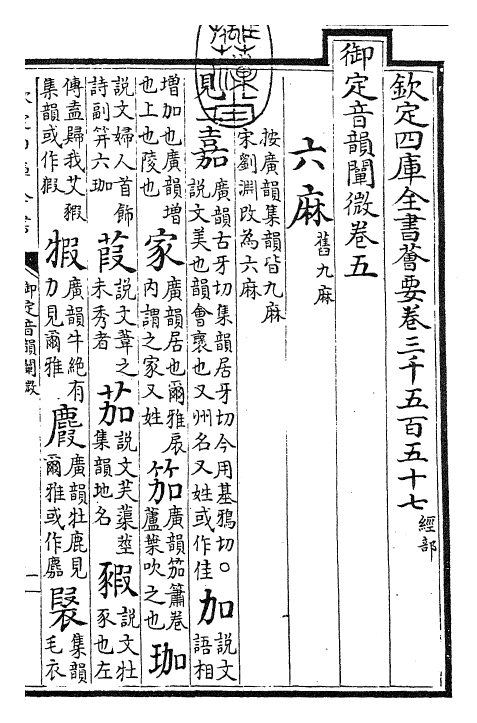 欽定四庫全書薈要卷三千五百五十七 經部
御定音韻闡微卷五
六麻 舊九麻
按廣韻集韻皆九麻
宋劉淵改為六麻
見一 嘉 廣韻古牙切集韻居牙切今用基鴉切○
說文美也韻會褒也又州名又姓或作佳
加 說文
語相
增加也廣韻增
也上也陵也
家 廣韻居也爾雅扆
內謂之家又姓
笳 廣韻笳簫卷
蘆葉吹之也
珈
說文婦人首飾
詩副笄六珈
葭 說文葦之
未秀者
茄 說文芙蕖莖
集韻地名
豭 說文牡
豕也左
傳盍歸我艾豭
集韻或作猳
犌 廣韻牛絶有
力見爾雅
麚 廣韻牡鹿見
爾雅或作麍
䪗 集韻
毛衣
御定音韻闡微